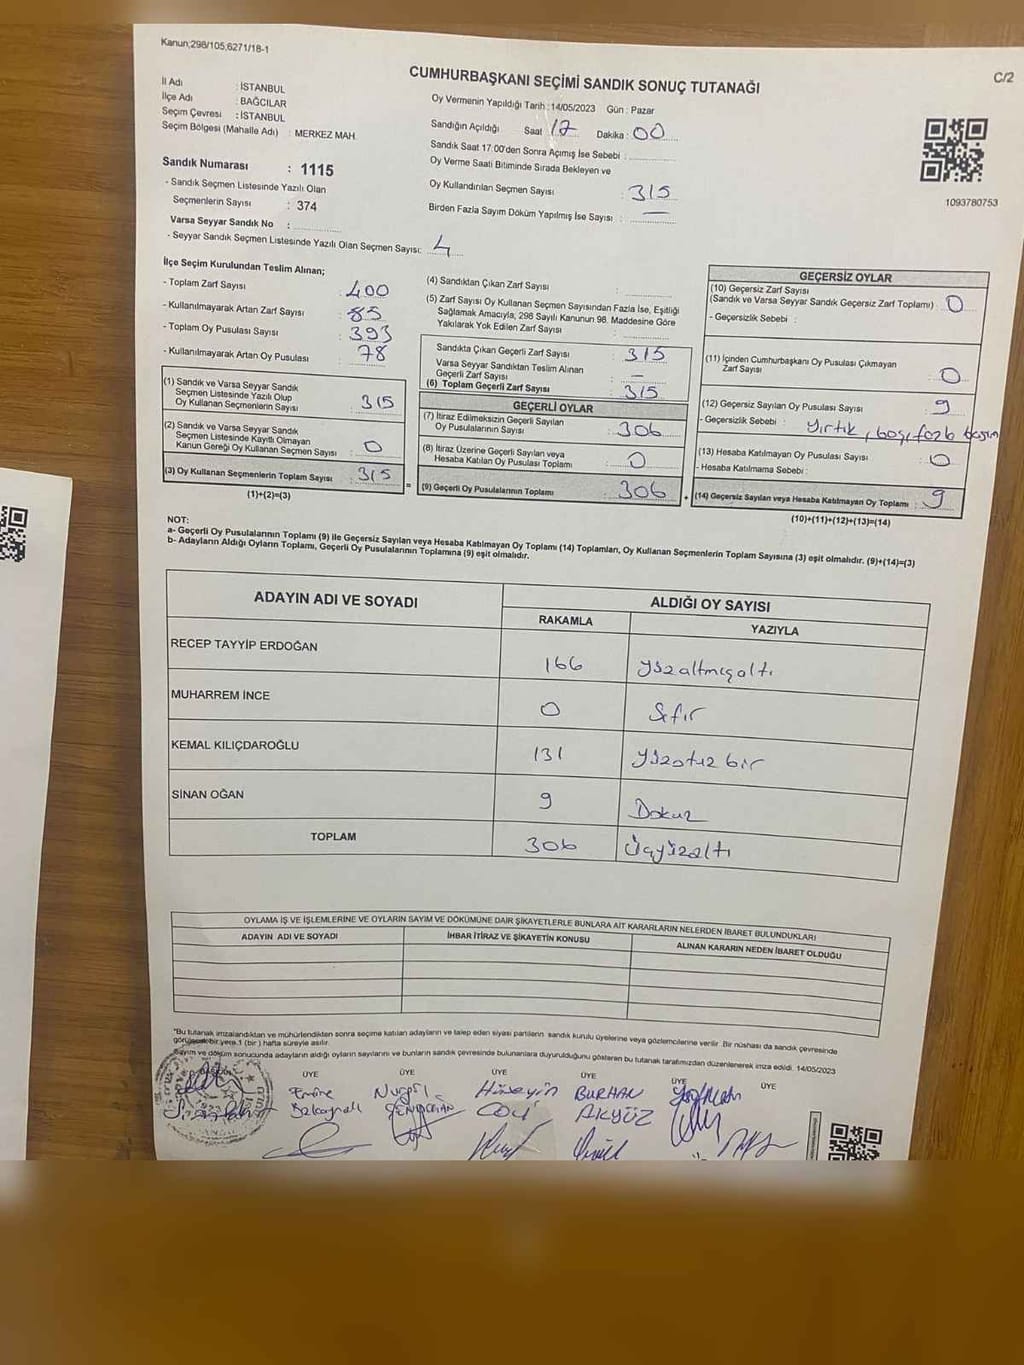 Kanun;298/105,6271/18-1
C/2
CUMHURBAŞKANI SEÇİMİ SANDIK SONUÇ TUTANAĞI
İl Adı : İSTANBUL
İlçe Adı : BAĞCILAR
Seçim Çevresi : İSTANBUL
Seçim Bölgesi (Mahalle Adı) : MERKEZ MAH.
Sandık Numarası : 1115
- Sandık Seçmen Listesinde Yazılı Olan
Seçmenlerin Sayısı : 374
Varsa Seyyar Sandık No :
- Seyyar Sandık Seçmen Listesinde Yazılı Olan Seçmen Sayısı: 4
Oy Vermenin Yapıldığı Tarih : 14/05/2023 Gün : Pazar
Sandığın Açıldığı Saat 17 Dakika : 00
Sandık Saat 17:00'den Sonra Açılmış İse Sebebi :
Oy Verme Saati Bitiminde Sırada Bekleyen ve
Oy Kullandırılan Seçmen Sayısı : 315
Birden Fazla Sayım Döküm Yapılmış İse Sayısı : —
1093780753
İlçe Seçim Kurulundan Teslim Alınan;
- Toplam Zarf Sayısı : 400
- Kullanılmayarak Artan Zarf Sayısı : 85
- Toplam Oy Pusulası Sayısı : 393
- Kullanılmayarak Artan Oy Pusulası : 78
(1) Sandık ve Varsa Seyyar Sandık
Seçmen Listesinde Yazılı Olup
Oy Kullanan Seçmenlerin Sayısı : 315
(2) Sandık ve Varsa Seyyar Sandık
Seçmen Listesinde Kayıtlı Olmayan
Kanun Gereği Oy Kullanan Seçmen Sayısı : 0
(3) Oy Kullanan Seçmenlerin Toplam Sayısı : 315
(1)+(2)=(3)
(4) Sandıktan Çıkan Zarf Sayısı :
(5) Zarf Sayısı Oy Kullanan Seçmen Sayısından Fazla İse, Eşitliği
Sağlamak Amacıyla, 298 Sayılı Kanunun 98. Maddesine Göre
Yakılarak Yok Edilen Zarf Sayısı :
Sandıkta Çıkan Geçerli Zarf Sayısı : 315
Varsa Seyyar Sandıktan Teslim Alınan
Geçerli Zarf Sayısı : —
(6) Toplam Geçerli Zarf Sayısı : 315
GEÇERLİ OYLAR
(7) İtiraz Edilmeksizin Geçerli Sayılan
Oy Pusulalarının Sayısı : 306
(8) İtiraz Üzerine Geçerli Sayılan veya
Hesaba Katılan Oy Pusulası Toplamı : 0
(9) Geçerli Oy Pusulalarının Toplamı : 306
GEÇERSİZ OYLAR
(10) Geçersiz Zarf Sayısı
(Sandık ve Varsa Seyyar Sandık Geçersiz Zarf Toplamı) : 0
- Geçersizlik Sebebi :
(11) İçinden Cumhurbaşkanı Oy Pusulası Çıkmayan
Zarf Sayısı : 0
(12) Geçersiz Sayılan Oy Pusulası Sayısı : 9
- Geçersizlik Sebebi : Yırtık, boş, fazla basım
(13) Hesaba Katılmayan Oy Pusulası Sayısı : 0
- Hesaba Katılmama Sebebi :
(14) Geçersiz Sayılan veya Hesaba Katılmayan Oy Toplamı : 9
(10)+(11)+(12)+(13)=(14)
NOT:
a- Geçerli Oy Pusulalarının Toplamı (9) ile Geçersiz Sayılan veya Hesaba Katılmayan Oy Toplamı (14) Toplamları, Oy Kullanan Seçmenlerin Toplam Sayısına (3) eşit olmalıdır. (9)+(14)=(3)
b- Adayların Aldığı Oyların Toplamı, Geçerli Oy Pusulalarının Toplamına (9) eşit olmalıdır.
ADAYIN ADI VE SOYADI
ALDIĞI OY SAYISI
RAKAMLA YAZIYLA
RECEP TAYYİP ERDOĞAN 166 Yüzaltmışaltı
MUHARREM İNCE 0 Sıfır
KEMAL KILIÇDAROĞLU 131 Yüzotuz bir
SİNAN OĞAN 9 Dokuz
TOPLAM 306 Üçyüzaltı
OYLAMA İŞ VE İŞLEMLERİNE VE OYLARIN SAYIM VE DÖKÜMÜNE DAİR ŞİKAYETLERLE BUNLARA AİT KARARLARIN NELERDEN İBARET BULUNDUKLARI
ADAYIN ADI VE SOYADI İHBAR İTİRAZ VE ŞİKAYETİN KONUSU ALINAN KARARIN NEDEN İBARET OLDUĞU
"Bu tutanak imzalandıktan ve mühürlendikten sonra seçime katılan adayların ve talep eden siyasi partilerin sandık kurulu üyelerine veya gözlemcilerine verilir. Bir nüshası da sandık çevresinde
görülecek bir yere 1 (bir) hafta süreyle asılır.
Sayım ve döküm sonucunda adayların aldığı oyların sayılarını ve bunların sandık çevresinde bulunanlara duyurulduğunu gösteren bu tutanak tarafımızdan düzenlenerek imza edildi. 14/05/2023
ÜYE ÜYE ÜYE ÜYE ÜYE ÜYE
Emine Nurgül Hüseyin BURHAN
AKYÜZ